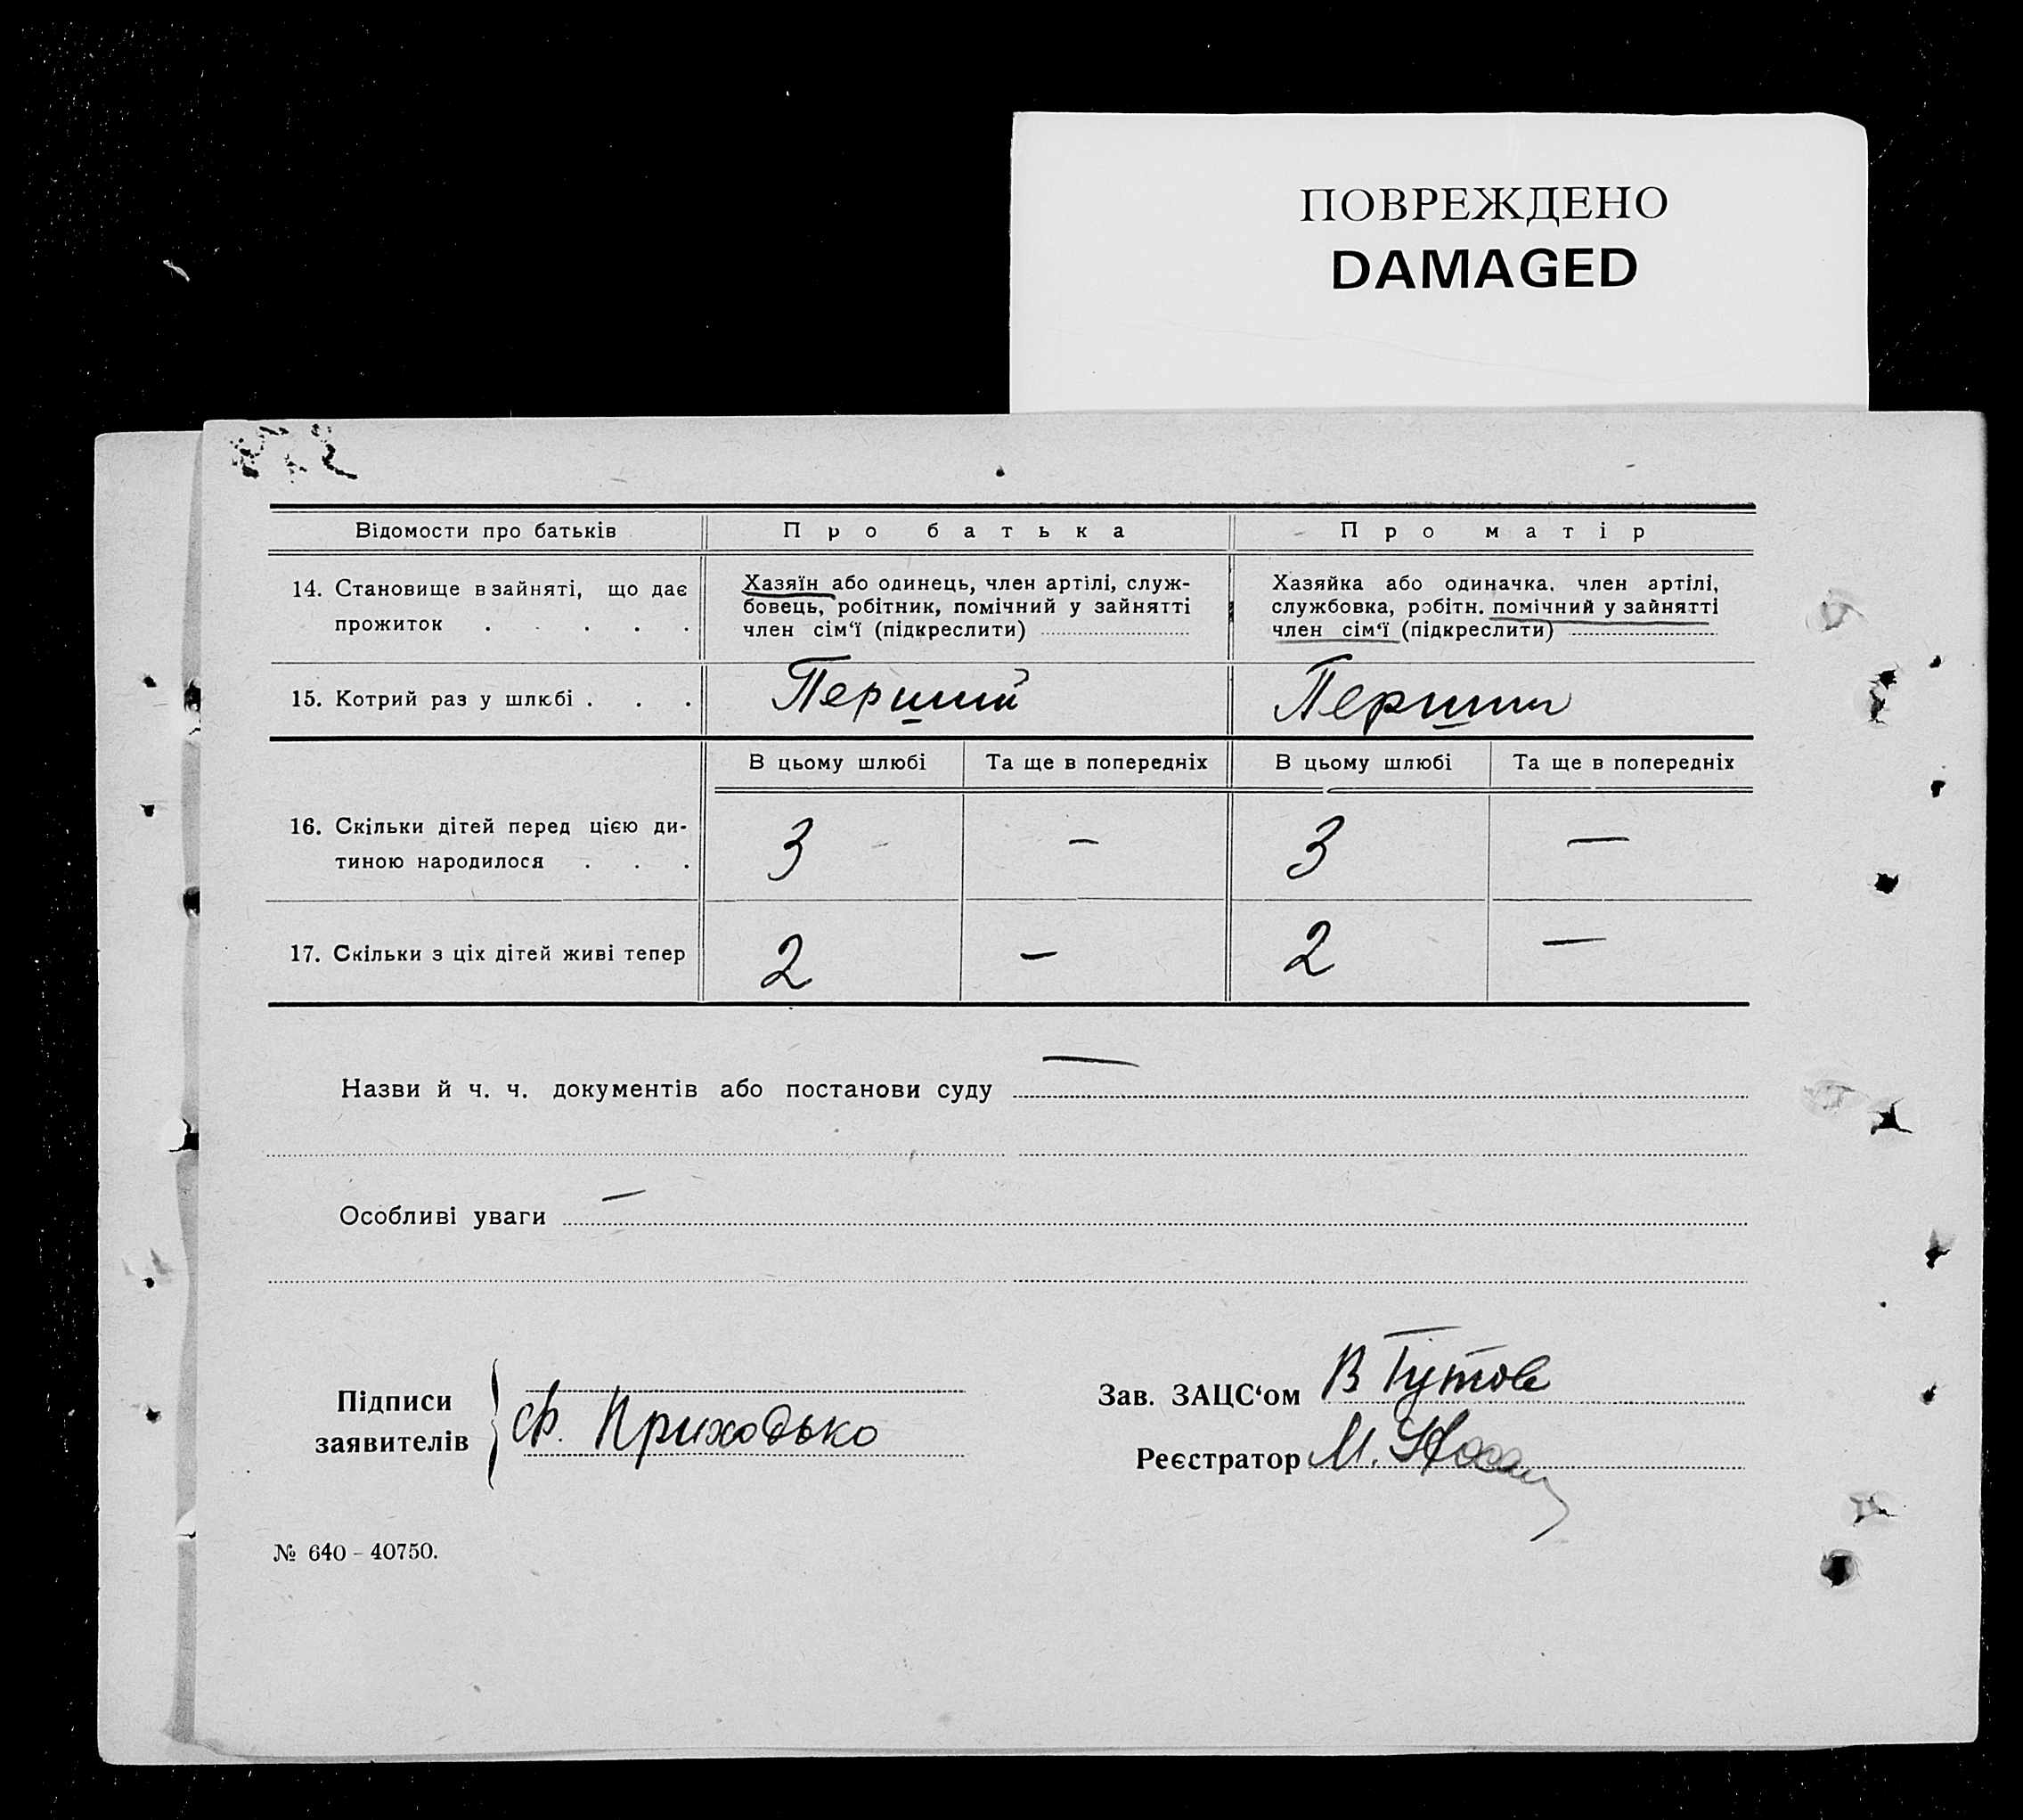 ПОВРЕЖДЕНО
DAMAGED
Відомости про батьків
Про батька
Про матір
14. Становище в зайняті, що дає
прожиток . . . . .
Хазяїн або одинець, член артілі, служ-
бовець, робітник, помічний у зайнятті
член сім‘ї (підкреслити)
Хазяйка або одиначка. член артілі,
службовка, робітн. помічний у зайнятті
член сім‘ї (підкреслити)
15. Котрий раз у шлюбі . . .
Перший
Перший
В цьому шлюбі
Та ще в попередніх
В цьому шлюбі
Та ще в попередніх
16. Скільки дітей перед цією ди-
тиною народилося . . .
3 — 3 —
17. Скільки з ціх дітей живі тепер
2 — 2 —
Назви й ч. ч. документів або постанови суду —
Особливі уваги —
Підписи
заявителів
Ф. Приходько
Зав. ЗАЦС‘ом В Гутов
Реєстратор М.
№ 640 – 40750.